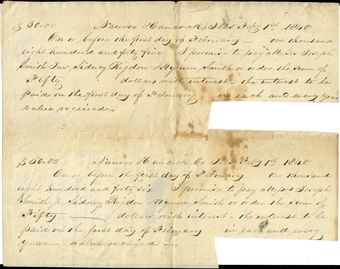 $ 50.00 Nauvoo Hancock Co Ills Feby 1st 1840
On or before the first day of February one thousand
eight hundred and forty five I promise to pay Joseph
Smith Jun Sidney Rigdon & Hyrum Smith or order the sum of
Fifty dollars with interest the interest to be
paid on the first day of February in each and every year
value received
$ 50.00 Nauvoo Hancock Co Ills Feby 1st 1840
On or before the first day of February one thousand
eight hundred and forty six I promise to pay Joseph
Smith Jr Sidney Rigdon Hyrum Smith or order the sum of
Fifty dollars with interest the interest to be
paid on the first day of February in each and every
year value received